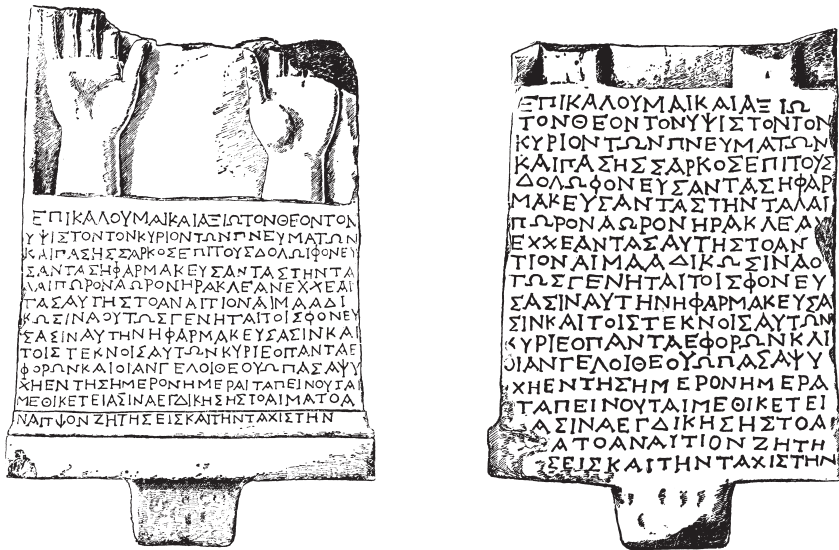 ΕΠΙΚΑΛΟΥΜΑΙΚΑΙΑΞΙΩΤΟΝΘΕΟΝΤΟΝ
ΥΨΙΣΤΟΝΤΟΝΚΥΡΙΟΝΤΩΝΠΝΕΥΜΑΤΩΝ
ΚΑΙΠΑΣΗΣΣΑΡΚΟΣΕΠΙΤΟΥΣΔΟΛΩΙΦΟΝΕΥ
ΣΑΝΤΑΣΗΦΑΡΜΑΚΕΥΣΑΝΤΑΣΤΗΝΤΑ
ΛΑΙΠΩΡΟΝΑΩΡΟΝΗΡΑΚΛΕΑΝΕΧΧΕΑΙ
ΤΑΣΑΥΤΗΣΤΟΑΝΑΙΤΙΟΝΑΙΜΑΑΔΙ
ΚΩΣΙΝΑΟΥΤΩΣΓΕΝΗΤΑΙΤΟΙΣΦΟΝΕΥ
ΣΑΣΙΝΑΥΤΗΝΗΦΑΡΜΑΚΕΥΣΑΣΙΝΚΑΙ
ΤΟΙΣΤΕΚΝΟΙΣΑΥΤΩΝΚΥΡΙΕΟΠΑΝΤΑΕ
ΦΟΡΩΝΚΑΙΟΙΑΝΓΕΛΟΙΘΕΟΥΩΠΑΣΑΨΥ
ΧΗΕΝΤΗΣΗΜΕΡΟΝΗΜΕΡΑΙΤΑΠΕΙΝΟΥΤΑΙ
ΜΕΘΙΚΕΤΕΙΑΣΙΝΑΕΓΔΙΚΗΣΗΣΤΟΑΙΜΑΤΟΑ
ΝΑΙΤΙΟΝΖΗΤΗΣΕΙΣΚΑΙΤΗΝΤΑΧΙΣΤΗΝ
ΕΠΙΚΑΛΟΥΜΑΙΚΑΙΑΞΙΩ
ΤΟΝΘΕΟΝΤΟΝΥΨΙΣΤΟΝΤΟΝ
ΚΥΡΙΟΝΤΩΝΠΝΕΥΜΑΤΩΝ
ΚΑΙΠΑΣΗΣΣΑΡΚΟΣΕΠΙΤΟΥΣ
ΔΟΛΩΦΟΝΕΥΣΑΝΤΑΣΗΦΑΡ
ΜΑΚΕΥΣΑΝΤΑΣΤΗΝΤΑΛΑΙ
ΠΩΡΟΝΑΩΡΟΝΗΡΑΚΛΕΑΝ
ΕΧΧΕΑΝΤΑΣΑΥΤΗΣΤΟΑΝ
ΤΙΟΝΑΙΜΑΑΔΙΚΩΣΙΝΑΟ
ΤΩΣΓΕΝΗΤΑΙΤΟΙΣΦΟΝΕΥ
ΣΑΣΙΝΑΥΤΗΝΗΦΑΡΜΑΚΕΥΣΑ
ΣΙΝΚΑΙΤΟΙΣΤΕΚΝΟΙΣΑΥΤΩΝ
ΚΥΡΙΕΟΠΑΝΤΑΕΦΟΡΩΝΚΑΙ
ΟΙΑΝΓΕΛΟΙΘΕΟΥΩΠΑΣΑΨΥ
ΧΗΕΝΤΗΣΗΜΕΡΟΝΗΜΕΡΑ
ΤΑΠΕΙΝΟΥΤΑΙΜΕΘΙΚΕΤΕΙ
ΑΣΙΝΑΕΓΔΙΚΗΣΗΣΤΟΑΙ
ΑΤΟΑΝΑΙΤΙΟΝΖΗΤΗ
ΣΕΙΣΚΑΙΤΗΝΤΑΧΙΣΤΗΝ